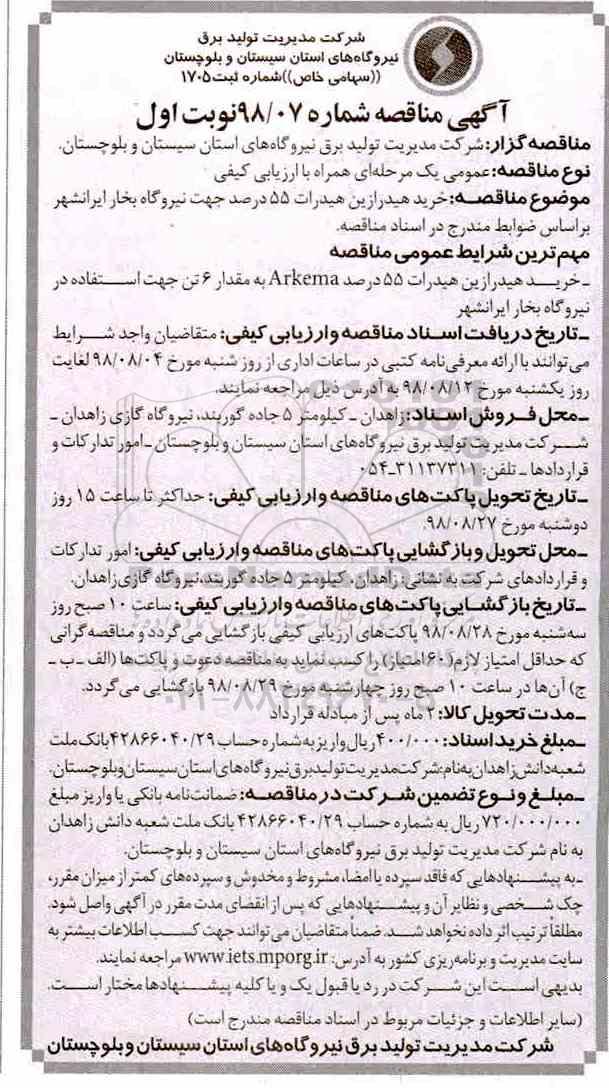 شرکت مدیریت تولید برق
نیروگاه‌های استان سیستان و بلوچستان
((سهامی خاص))شماره ثبت۱۷۰۵
آگهی مناقصه شماره ۹۸/۰۷نوبت اول
مناقصه گزار: شرکت مدیریت تولید برق نیروگاه‌های استان سیستان و بلوچستان.
نوع مناقصه: عمومی یک مرحله‌ای همراه با ارزیابی کیفی
موضوع مناقصه: خرید هیدرازین هیدرات ۵۵ درصد جهت نیروگاه بخار ایرانشهر
براساس ضوابط مندرج در اسناد مناقصه.
مهم‌ترین شرایط عمومی مناقصه
ـ خرید هیدرازین هیدرات ۵۵ درصد Arkema به مقدار ۶ تن جهت استفاده در
نیروگاه بخار ایرانشهر
ـ تاریخ دریافت اسناد مناقصه وارزیابی کیفی: متقاضیان واجد شرایط
می‌توانند با ارائه معرفی‌نامه کتبی در ساعات اداری از روز شنبه مورخ ۹۸/۰۸/۰۴ لغایت
روز یکشنبه مورخ ۹۸/۰۸/۱۲ به آدرس ذیل مراجعه نمایند.
ـ محل فروش اسناد: زاهدان ـ کیلومتر ۵ جاده گوربند، نیروگاه گازی زاهدان ـ
شرکت مدیریت تولید برق نیروگاه‌های استان سیستان و بلوچستان ـ امور تدارکات و
قراردادها ـ تلفن: ۳۱۱۳۷۳۱۱-۰۵۴
ـ تاریخ تحویل پاکت‌های مناقصه وارزیابی کیفی: حداکثر تا ساعت ۱۵ روز
دوشنبه مورخ ۹۸/۰۸/۲۷.
ـ محل تحویل و بازگشایی پاکت‌های مناقصه وارزیابی کیفی: امور تدارکات
و قراردادهای شرکت به نشانی: زاهدان، کیلومتر ۵ جاده گوربند،نیروگاه گازی زاهدان.
ـ تاریخ بازگشایی پاکت‌های مناقصه وارزیابی کیفی: ساعت ۱۰ صبح روز
سه‌شنبه مورخ ۹۸/۰۸/۲۸ پاکت‌های ارزیابی کیفی بازگشایی می‌گردد و مناقصه‌گرانی
که حداقل امتیاز لازم (۶۰ امتیاز) را کسب نماید به مناقصه دعوت و پاکت‌ها (الف ـ ب ـ
ج) آن‌ها در ساعت ۱۰ صبح روز چهارشنبه مورخ ۹۸/۰۸/۲۹ بازگشایی می‌گردد.
ـ مدت تحویل کالا: ۲ ماه پس از مبادله قرارداد
ـ مبلغ خرید اسناد: ۴۰۰/۰۰۰ ریال واریز به شماره حساب ۴۲۸۶۶۰۴۰/۲۹ بانک ملت
شعبه دانش زاهدان به نام: شرکت مدیریت تولید برق نیروگاه‌های استان سیستان و بلوچستان.
ـ مبلغ و نوع تضمین شرکت در مناقصه: ضمانت‌نامه بانکی یا واریز مبلغ
۷۲۰/۰۰۰/۰۰۰ ریال به شماره حساب ۴۲۸۶۶۰۴۰/۲۹ بانک ملت شعبه دانش زاهدان
به نام شرکت مدیریت تولید برق نیروگاه‌های استان سیستان و بلوچستان.
ـ به پیشنهادهایی که فاقد سپرده یا امضا، مشروط و مخدوش و سپرده‌های کمتر از میزان مقرر،
چک شخصی و نظایر آن و پیشنهادهایی که پس از انقضای مدت مقرر در آگهی واصل شود،
مطلقاً ترتیب اثر داده نخواهد شد. ضمناً متقاضیان می‌توانند جهت کسب اطلاعات بیشتر به
سایت مدیریت و برنامه‌ریزی کشور به آدرس: www.iets.mporg.ir مراجعه نمایند.
بدیهی است این شرکت در رد یا قبول یک و یا کلیه پیشنهادها مختار است.
(سایر اطلاعات و جزئیات مربوط در اسناد مناقصه مندرج است)
شرکت مدیریت تولید برق نیروگاه‌های استان سیستان و بلوچستان